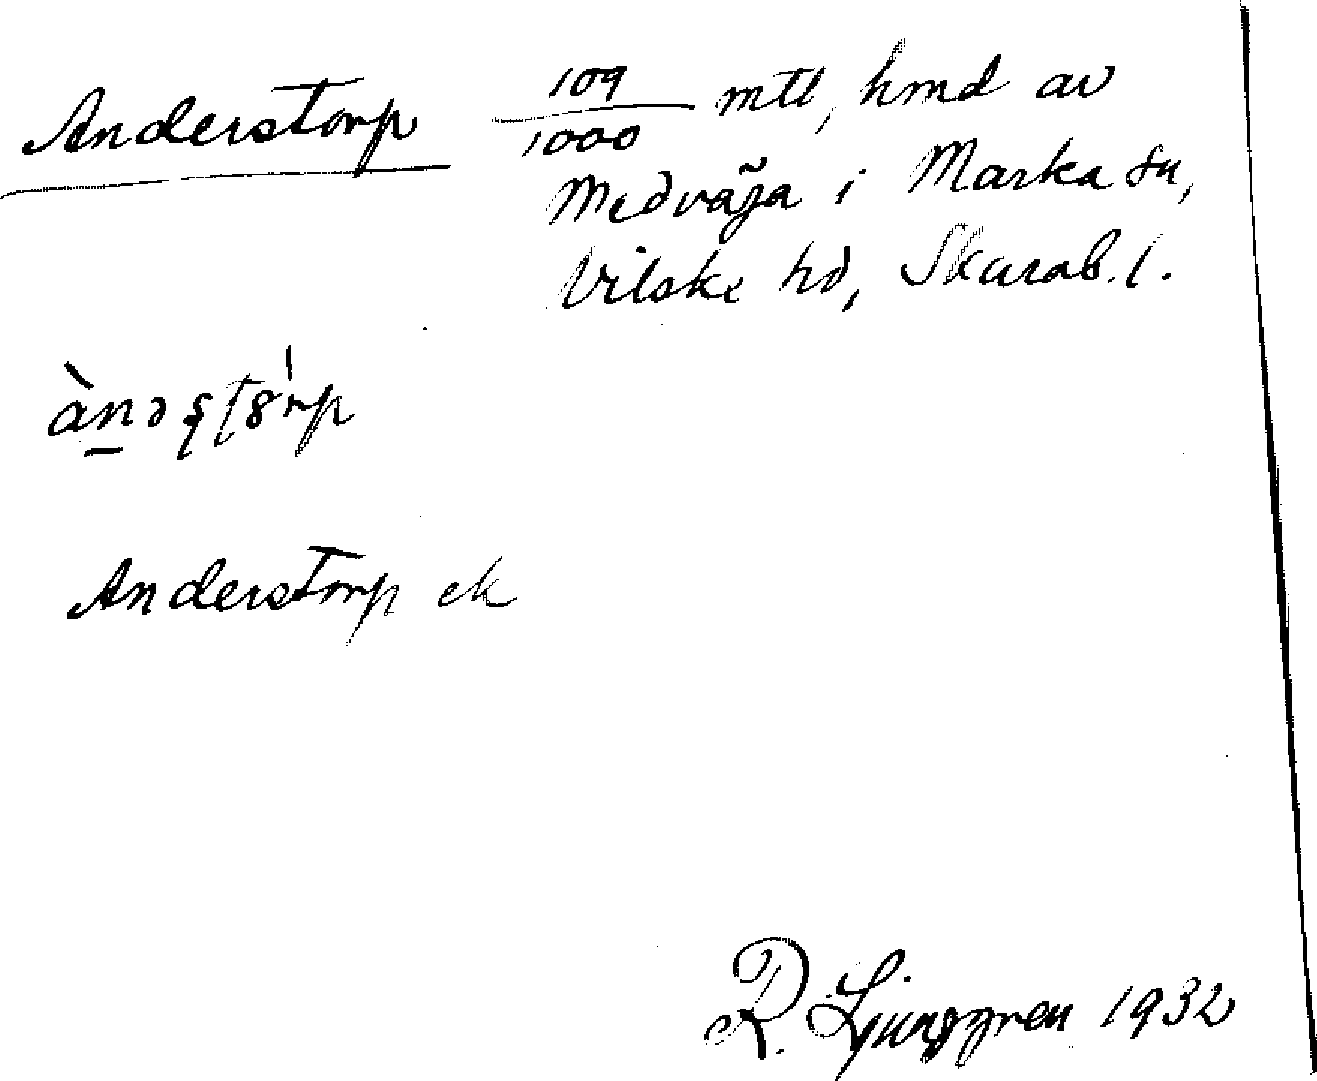 Anderstorp 109/1000 mtl, hmd av
Medväga i Marka sn,
Vilske hd, Skarab. l.
Anderstorp ek
R. Ljunggren 1932